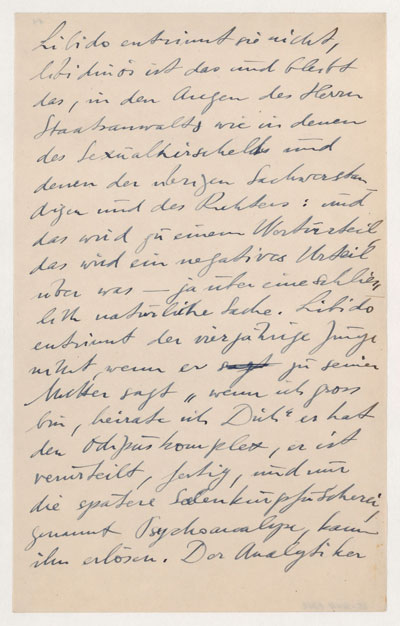 Libido entrinnt sie nicht,
libidinös ist das und bleibt
das, in den Augen des Herrn
Staatsanwalts wie in denen
des Sexualhirschelds und
denen der übrigen Sachverstän
digen und des Richters: und
das wird zu einem Werturteil,
das wird ein negatives Urteil
über was — ja über eine schlies,,
lich natürliche Sache. Libido
entrinnt der vierjährige Junge
nicht, wenn er sagt zu seiner
Mutter sagt „wenn ich gross
bin, heirate ich Dich" er hat
den Ödipuskomplex, er ist
verurteilt, fertig, und nur
die spätere Seelenkurpfuscherei,
genannt Psychoanalyse, kann
ihn erlösen. Der Analytiker